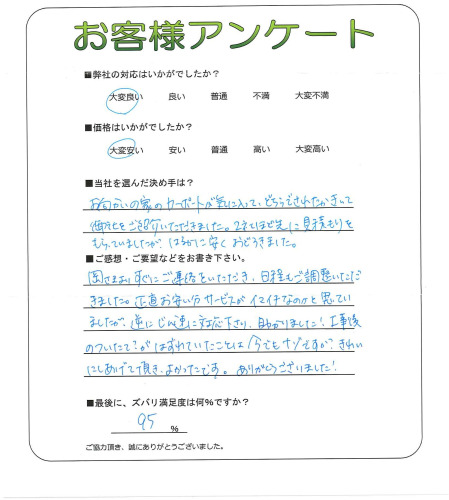 お客様アンケート
■弊社の対応はいかがでしたか？
大変良い 良い 普通 不満 大変不満
■価格はいかがでしたか？
大変安い 安い 普通 高い 大変高い
■当社を選んだ決め手は？
お向かいの家のカーポートが気に入って、どちらでされたかきって
御社をご紹介いただきました。2社ほど先に見積もりを
もらっていましたが、はるかに安くおどろきました。
■ご感想・ご要望などをお書き下さい。
岡さまより すぐにご連絡をいただき、日程もご調整いただ
きました。正直お安い分サービスがイマイチなのかと思ってい
ましたが、逆にじん速に対応下さり、助かりました！工事後
のついたて？がはずれていたことは今でもナゾですが、きれい
にしあげて頂き、よかったです。ありがとうございました！
■最後に、ズバリ満足度は何%ですか？
95 %
ご協力頂き、誠にありがとうございました。